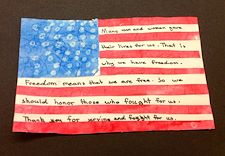 Many men and women gave
their lives for us. That is
why we have freedom.
Freedom means that we are free. So we
should honor those who fought for us.
Thank you for serving and fought for us.